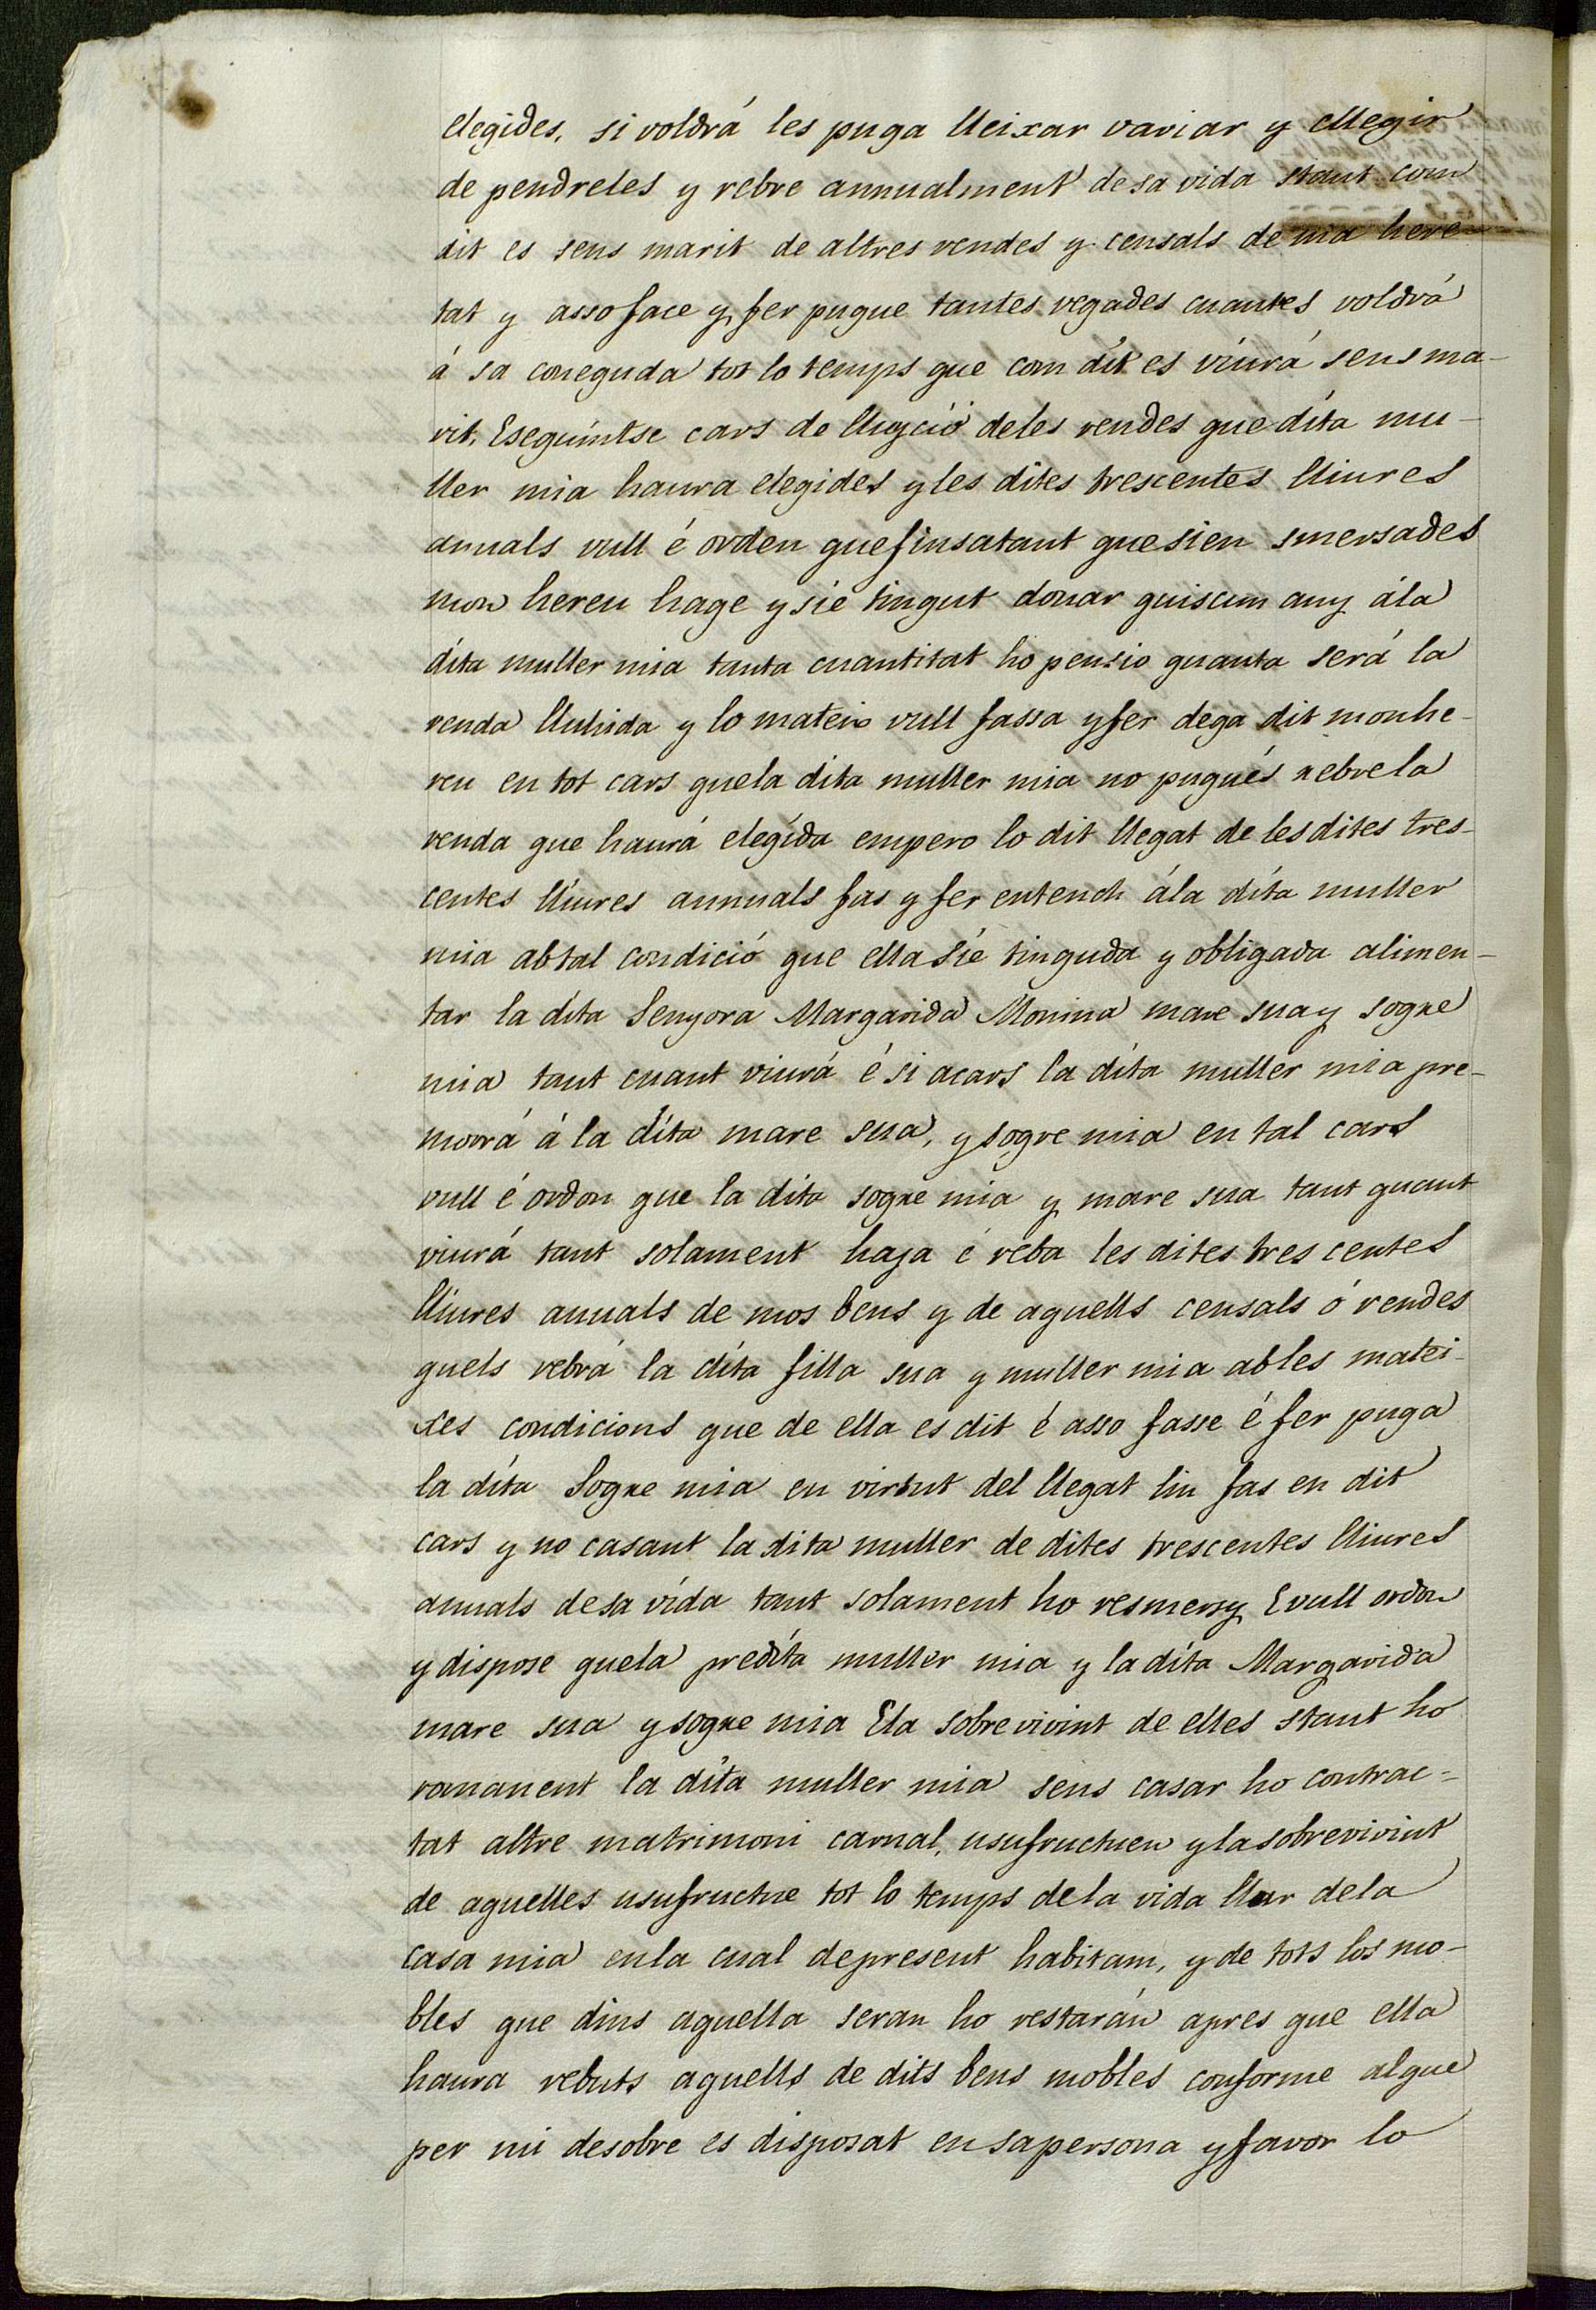 elegides, si voldrá les puga lleixar variar y ellegir
de pendreles y rebre annualment de sa vida stant com
dit es sens marit de altres rendes y censals de mia here-
tat y asso face y fer pugue tantes vegades cuantes voldrá
á sa coneguda tot lo temps que com dit es viurá sens ma-
rit, Eseguintse cars de lluyció deles rendes que dita mu-
ller mia haura elegides y les dites trescentes lliures
anuals vull é orden que finsatant que sien smersades
mon hereu hage y sie tingut donar quiscum any ála
dita muller mia tanta cuantitat ho pensio quanta será la
renda lluhida y lo mateix vull fassa y fer dega dit monhe-
reu en tot cars quela dita muller mia no pugués rebre la
renda que haurá elegida empero lo dit llegat de les dites tres-
centes lliures annuals fas y fer entench ála dita muller
mia ab tal condició que ella sie tinguda y obligada alimen-
tar la dita Senyora Margarida Monina mare sua y sogre
mia tant cuant viurá é si acars la dita muller mia pre-
morrá á la dita mare sua, y sogre mia en tal cars
vull é ordon que la dita sogre mia y mare sua tant quant
viurá tant solament haja é reba les dites tres centes
lliures anuals de mos bens y de aquells censals ó rendes
quels rebrá la dita filla sua y muller mia ab les matei-
xes condicions que de ella es dit é asso fasse é fer puga
la dita Sogre mia en virtut del llegat lin fas en dit
cars y no casant la dita muller de dites trescentes lliures
anuals desa vida tant solament ho resmersy E vull ordon
y dispose quela predita muller mia y la dita Margarida
mare sua y sogre mia Ela sobrevivint de elles stant ho
romanent la dita muller mia sens casar ho contrac-
tat altre matrimoni carnal, usufructuen y la sobrevivint
de aquelles usufructue tot lo temps de la vida llur dela
casa mia en la cual de present habitam, y de tots los mo-
bles que dins aquella seran ho restarán apres que ella
haura rebuts aquells de dits bens mobles conforme al que
per mi desobre es disposat en sa persona y favor lo